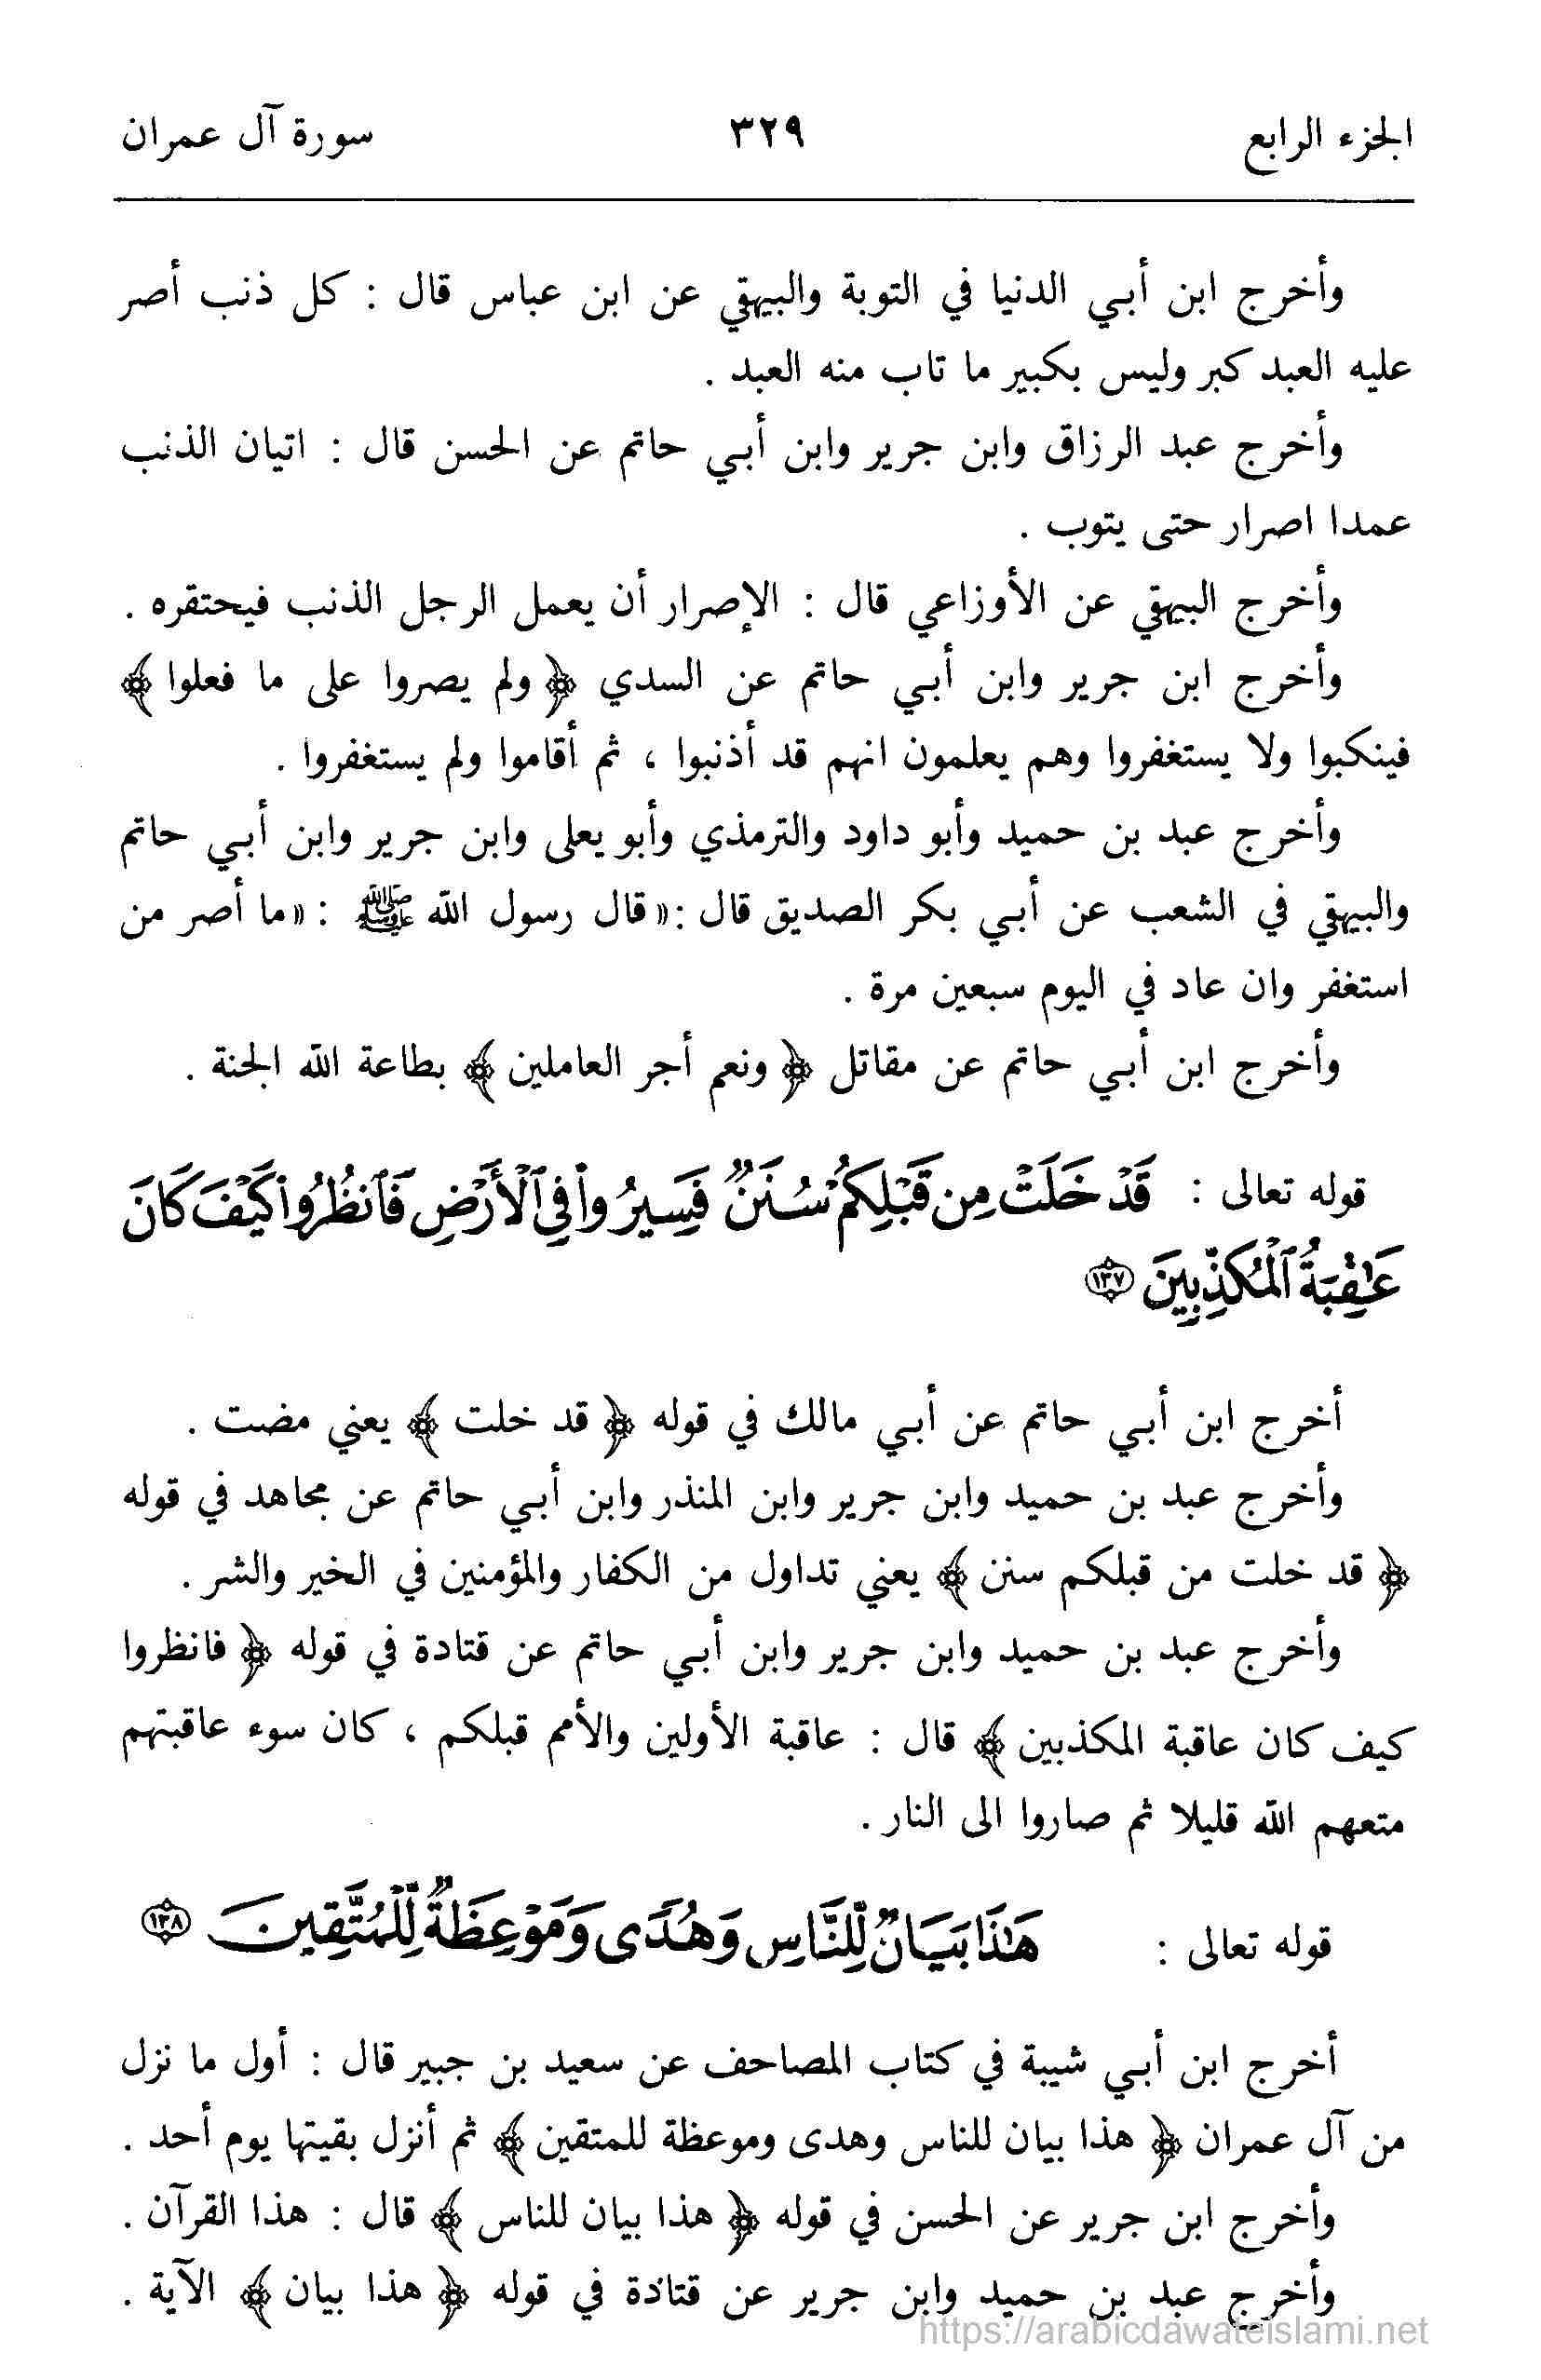 الجزء الرابع ٣٢٩ سورة آل عمران
وأخرج ابن أبي الدنيا في التوبة والبيهقي عن ابن عباس قال : كل ذنب أصر
عليه العبد كبر وليس بكبير ما تاب منه العبد .
وأخرج عبد الرزاق وابن جرير وابن أبي حاتم عن الحسن قال : اتيان الذنب
عمدا اصرار حتى يتوب .
وأخرج البيهقي عن الأوزاعي قال : الإصرار أن يعمل الرجل الذنب فيحتقره .
وأخرج ابن جرير وابن أبي حاتم عن السدي ﴿ ولم يصروا على ما فعلوا ﴾
فينكبوا ولا يستغفروا وهم يعلمون انهم قد أذنبوا ، ثم أقاموا ولم يستغفروا .
وأخرج عبد بن حميد وأبو داود والترمذي وأبو يعلى وابن جرير وابن أبي حاتم
والبيهقي في الشعب عن أبي بكر الصديق قال :«قال رسول الله ﷺ : «ما أصر من
استغفر وان عاد في اليوم سبعين مرة .
وأخرج ابن أبي حاتم عن مقاتل ﴿ ونعم أجر العاملين ﴾ بطاعة الله الجنة .
قوله تعالى : قَدْ خَلَتْ مِن قَبْلِكُمْ سُنَنٌ فَسِيرُوا۟ فِى ٱلْأَرْضِ فَٱنظُرُوا۟ كَيْفَ كَانَ
عَٰقِبَةُ ٱلْمُكَذِّبِينَ ١٣٧
أخرج ابن أبي حاتم عن أبي مالك في قوله ﴿ قد خلت ﴾ يعني مضت .
وأخرج عبد بن حميد وابن جرير وابن المنذر وابن أبي حاتم عن مجاهد في قوله
﴿ قد خلت من قبلكم سنن ﴾ يعني تداول من الكفار والمؤمنين في الخير والشر .
وأخرج عبد بن حميد وابن جرير وابن أبي حاتم عن قتادة في قوله ﴿ فانظروا
كيف كان عاقبة المكذبين ﴾ قال : عاقبة الأولين والأمم قبلكم ، كان سوء عاقبتهم
متعهم الله قليلا ثم صاروا الى النار .
قوله تعالى : هَٰذَا بَيَانٌ لِّلنَّاسِ وَهُدًى وَمَوْعِظَةٌ لِّلْمُتَّقِينَ ١٣٨
أخرج ابن أبي شيبة في كتاب المصاحف عن سعيد بن جبير قال : أول ما نزل
من آل عمران ﴿ هذا بيان للناس وهدى وموعظة للمتقين ﴾ ثم أنزل بقيتها يوم أحد .
وأخرج ابن جرير عن الحسن في قوله ﴿ هذا بيان للناس ﴾ قال : هذا القرآن .
وأخرج عبد بن حميد وابن جرير عن قتادة في قوله ﴿ هذا بيان ﴾ الآية .
https://arabicdawateislami.net